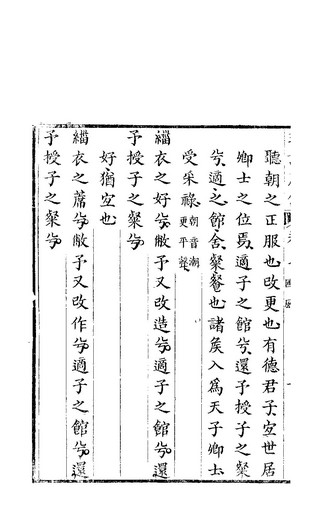 聽朝之正服也改更也有德君子宐世居
卿士之位焉適子之館兮還予授子之粲
兮適之館舍粲餐也諸矦入為天子卿士
受采祿朝音潮更平聲
緇衣之好兮敝予又改造兮適子之館兮還
予授子之粲兮
好猶宐也
緇衣之蓆兮敝予又改作兮適子之館兮還
予授子之粲兮